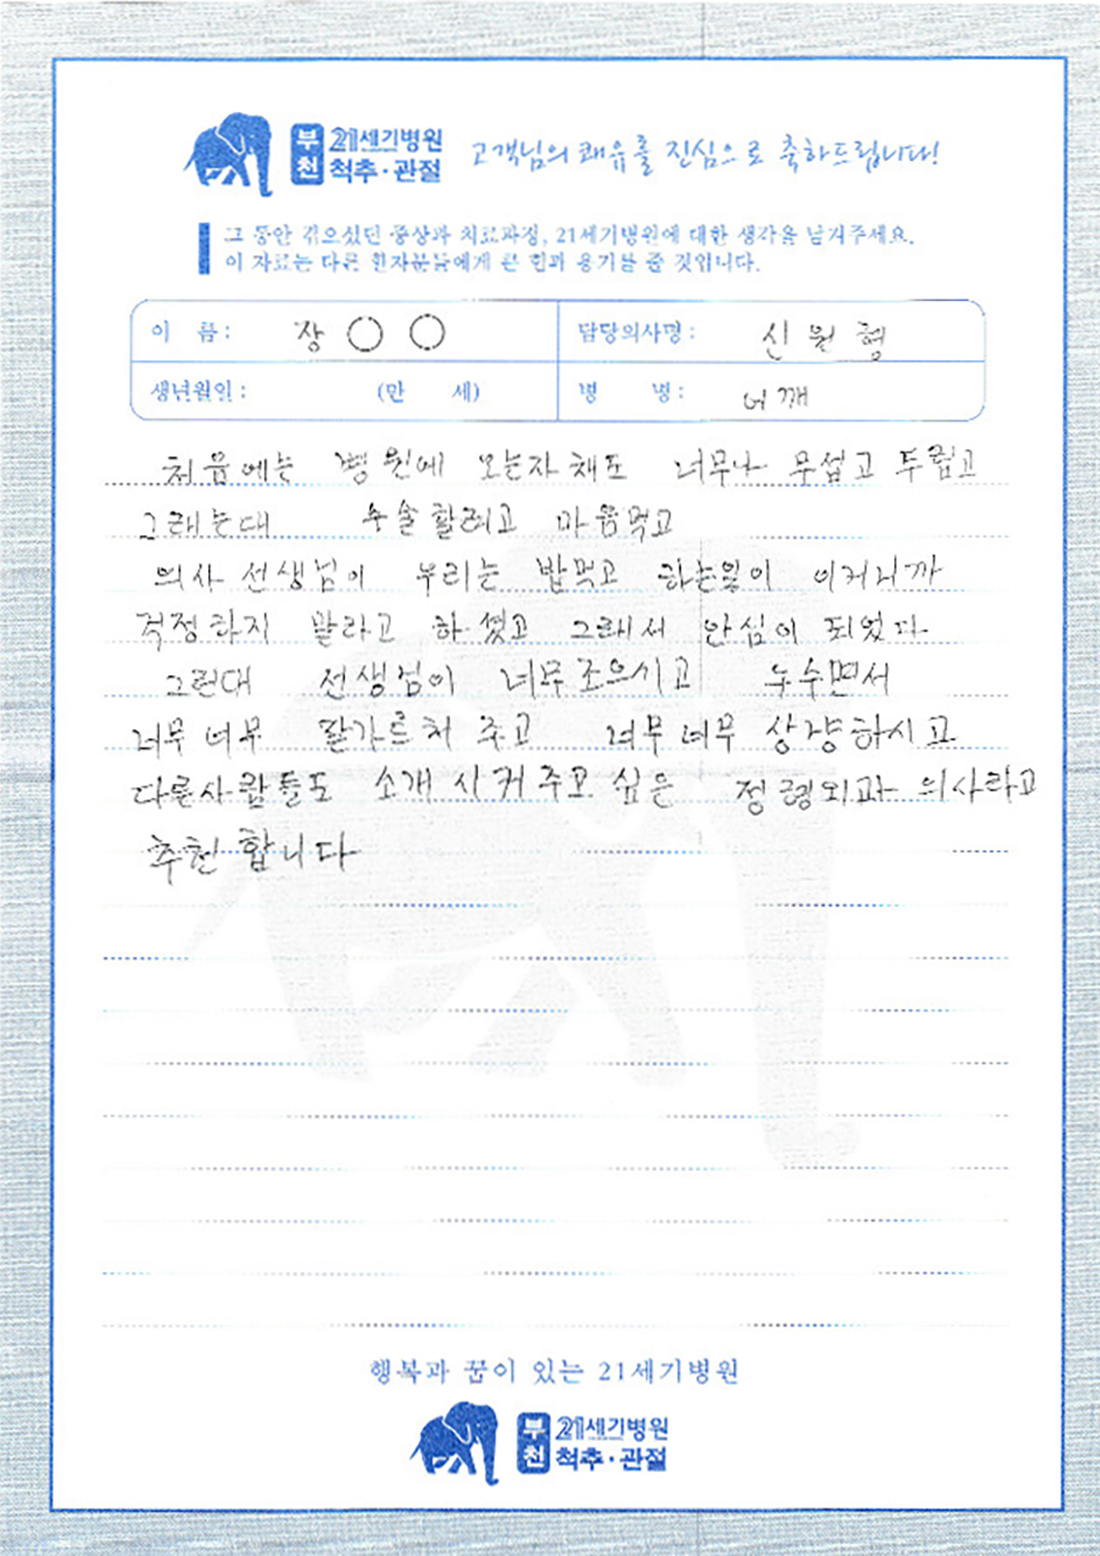 부천 21세기병원 척추·관절 고객님의 쾌유를 진심으로 축하드립니다!
그 동안 겪으셨던 증상과 치료과정, 21세기병원에 대한 생각을 남겨주세요.
이 자료는 다른 환자분들에게 큰 힘과 용기를 줄 것입니다.
이 름 : 장 ○ ○ 담당의사명 : 신원형
생년월일 : (만 세) 병 명 : 어깨
처음에는 병원에 오는자체도 너무나 무섭고 두렵고
그래는대 수술할려고 마음먹고
의사 선생님이 우리는 밥먹고 하는일이 이거니까
걱정하지 말라고 하셨고 그래서 안심이 되었다
그런대 선생님이 너무조으시고 누수면서
너무 너무 잘가르처 주고 너무너무 상냥하시고
다른사람들도 소개 시켜주고 싶은 정형외과 의사라고
추천합니다
행복과 꿈이 있는 21세기병원
부천 21세기병원 척추·관절